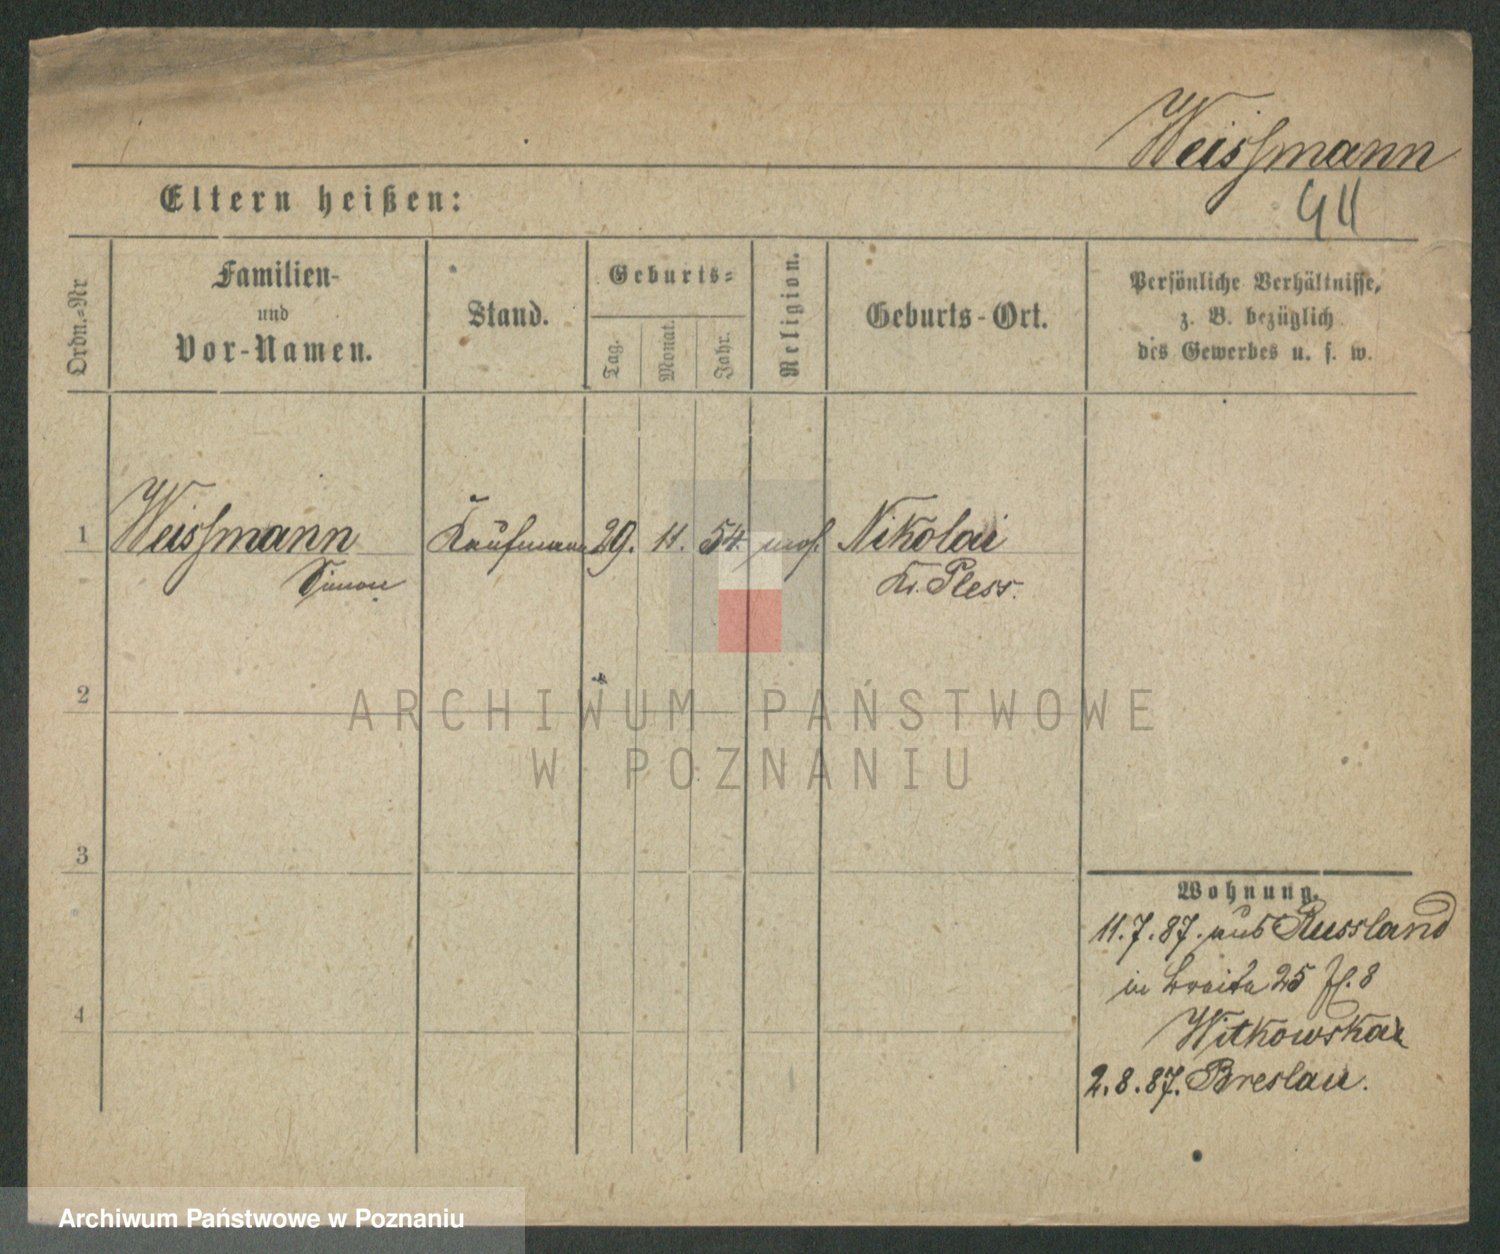 Weissmann
Eltern heißen:
Ordn.-Nr
Familien-
und
Vor-Namen.
Stand.
Geburts=
Tag.
Monat.
Jahr.
Religion.
Geburts-Ort.
Persönliche Verhältnisse,
z. B. bezüglich
des Gewerbes u. s. w.
1 Weissmann Kaufmann 29. 11. 54. mos. Nikolai
Simon Kr. Pless.
2
ARCHIWUM PAŃSTWOWE
W POZNANIU
3
Wohnung.
11.7.87. aus Russland
in Breite 25 Fl. 8
4
Witkowska
2.8.87. Breslau.
Archiwum Państwowe w Poznaniu